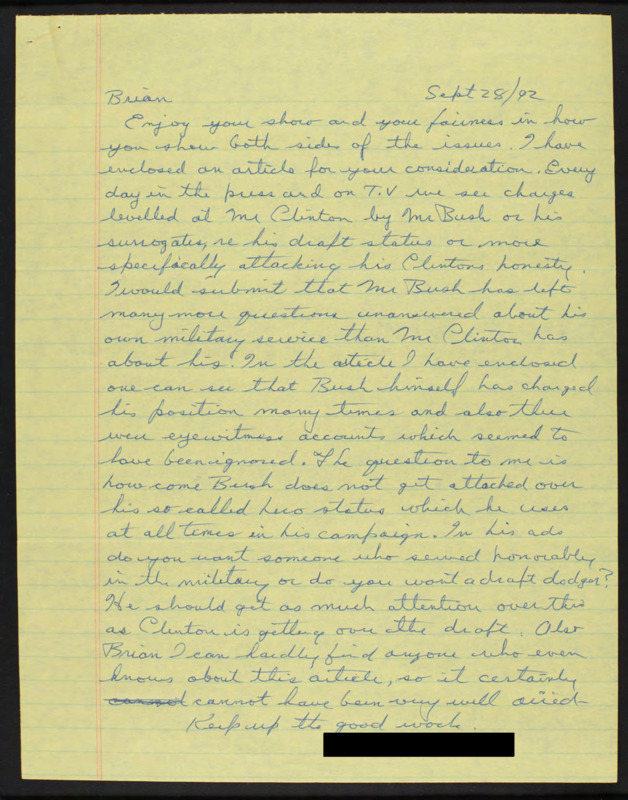 Brian Sept 28/92
Enjoy your show and your fairness in how
you show both sides of the issues. I have
enclosed an article for your consideration. Every
day in the press and on T.V we see charges
levelled at Mr Clinton by Mr Bush or his
surrogates, re his draft status or more
specifically attacking his Clintons honesty.
I would submit that Mr Bush has left
many more questions unanswered about his
own military service than Mr Clinton has
about his. In the article I have enclosed
one can see that Bush himself has changed
his position many times and also there
were eyewitness accounts which seemed to
have been ignored. The question to me is
how come Bush does not get attacked over
his so called hero status which he uses
at all times in his campaign. In his ads
do you want someone who served honorably
in the military or do you want a draft dodger?
He should get as much attention over this
as Clinton is getting over the draft. Also
Brian I can hardly find anyone who even
knows about this article, so it certainly
cannot have been very well aired-
Keep up the good work.